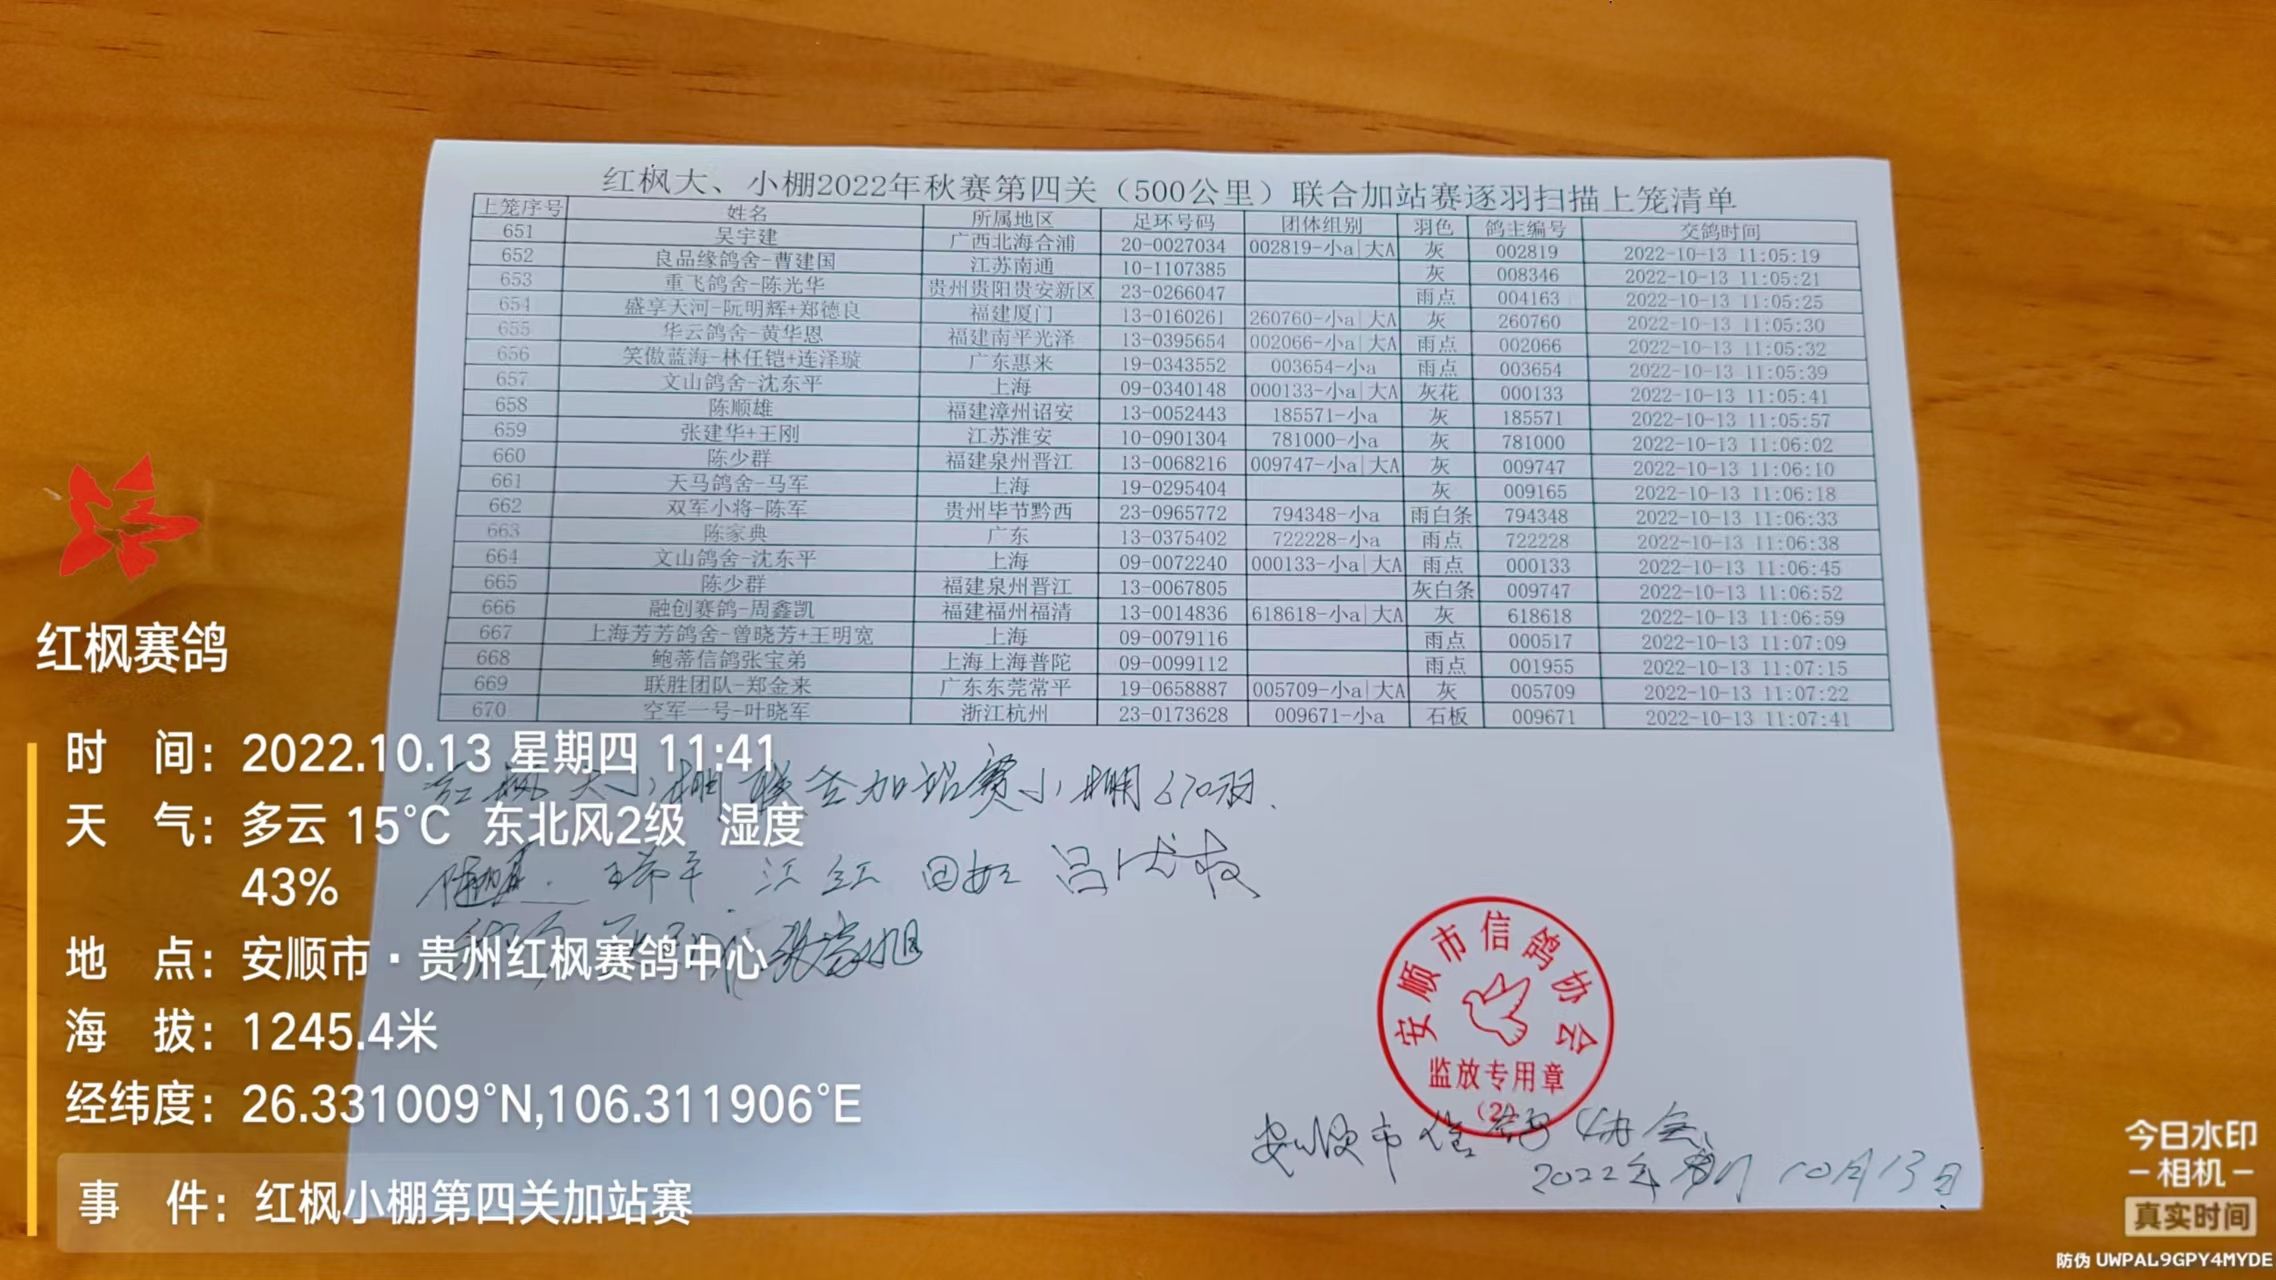 红枫大、小棚2022年秋赛第四关（500公里）联合加站赛逐羽扫描上笼清单
上笼序号 姓名 所属地区 足环号码 团体组别 羽色 鸽主编号 交鸽时间
651 吴宇建 广西北海合浦 20-0027034 002819-小a|大A 灰 002819 2022-10-13 11:05:19
652 良品缘鸽舍-曹建国 江苏南通 10-1107385 灰 008346 2022-10-13 11:05:21
653 重飞鸽舍-陈光华 贵州贵阳贵安新区 23-0266047 雨点 004163 2022-10-13 11:05:25
654 盛享天河-阮明辉+郑德良 福建厦门 13-0160261 260760-小a|大A 灰 260760 2022-10-13 11:05:30
655 华云鸽舍-黄华恩 福建南平光泽 13-0395654 002066-小a|大A 雨点 002066 2022-10-13 11:05:32
656 笑傲蓝海-林任铠+连泽璇 广东惠来 19-0343552 003654-小a 雨点 003654 2022-10-13 11:05:39
657 文山鸽舍-沈东平 上海 09-0340148 000133-小a|大A 灰花 000133 2022-10-13 11:05:41
658 陈顺雄 福建漳州诏安 13-0052443 185571-小a 灰 185571 2022-10-13 11:05:57
659 张建华+王刚 江苏淮安 10-0901304 781000-小a 灰 781000 2022-10-13 11:06:02
660 陈少群 福建泉州晋江 13-0068216 009747-小a|大A 灰 009747 2022-10-13 11:06:10
661 天马鸽舍-马军 上海 19-0295404 灰 009165 2022-10-13 11:06:18
662 双军小将-陈军 贵州毕节黔西 23-0965772 794348-小a 雨白条 794348 2022-10-13 11:06:33
663 陈家典 广东 13-0375402 722228-小a 雨点 722228 2022-10-13 11:06:38
664 文山鸽舍-沈东平 上海 09-0072240 000133-小a|大A 雨点 000133 2022-10-13 11:06:45
665 陈少群 福建泉州晋江 13-0067805 灰白条 009747 2022-10-13 11:06:52
666 融创赛鸽-周鑫凯 福建福州福清 13-0014836 618618-小a|大A 灰 618618 2022-10-13 11:06:59
667 上海芳芳鸽舍-曾晓芳+王明宽 上海 09-0079116 雨点 000517 2022-10-13 11:07:09
668 鲍蒂信鸽张宝弟 上海上海普陀 09-0099112 雨点 001955 2022-10-13 11:07:15
669 联胜团队-郑金来 广东东莞常平 19-0658887 005709-小a|大A 灰 005709 2022-10-13 11:07:22
670 空军一号-叶晓军 浙江杭州 23-0173628 009671-小a 石板 009671 2022-10-13 11:07:41
红枫大小棚联合加站赛小棚670羽.
江红 田如
安顺市信鸽协会
监放专用章
(2)
安顺市信鸽协会
2022年 10月13日
红枫赛鸽
时 间：2022.10.13 星期四 11:41
天 气：多云 15℃ 东北风2级 湿度
43%
地 点：安顺市·贵州红枫赛鸽中心
海 拔：1245.4米
经纬度：26.331009°N,106.311906°E
事 件：红枫小棚第四关加站赛
今日水印
-相机-
真实时间
防伪 UWPAL9GPY4MYDE